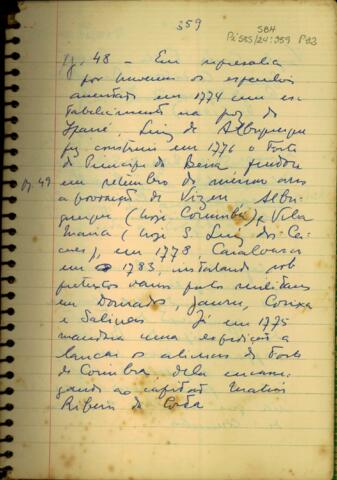 359
SBH
Pi 585/24:359 P83
Pg. 48 - Em represalia
por haverem os espanhois
aventado em 1774 um es-
tabelecimento na foz do
Ipané, Luiz de Albuquerque
fez construir em 1776 o Forte
do Principe da Beira fundou
Pg. 49 em setembro do mesmo ano
a povoação de Vizeu, Albu-
querque (hoje Corumbá) e Vila
Maria (hoje S. Luiz de Ca-
ceres), em 1778 Casalvasco
em 1783, instalando sob
pretextos varios postos militares
em Dourados, Jauru, Corixa
e Salinas Já em 1775
mandara uma expedição a
lançar os alicerces do Forte
de Coimbra dela encarre-
gando ao capitão Matias
Ribeiro da Costa